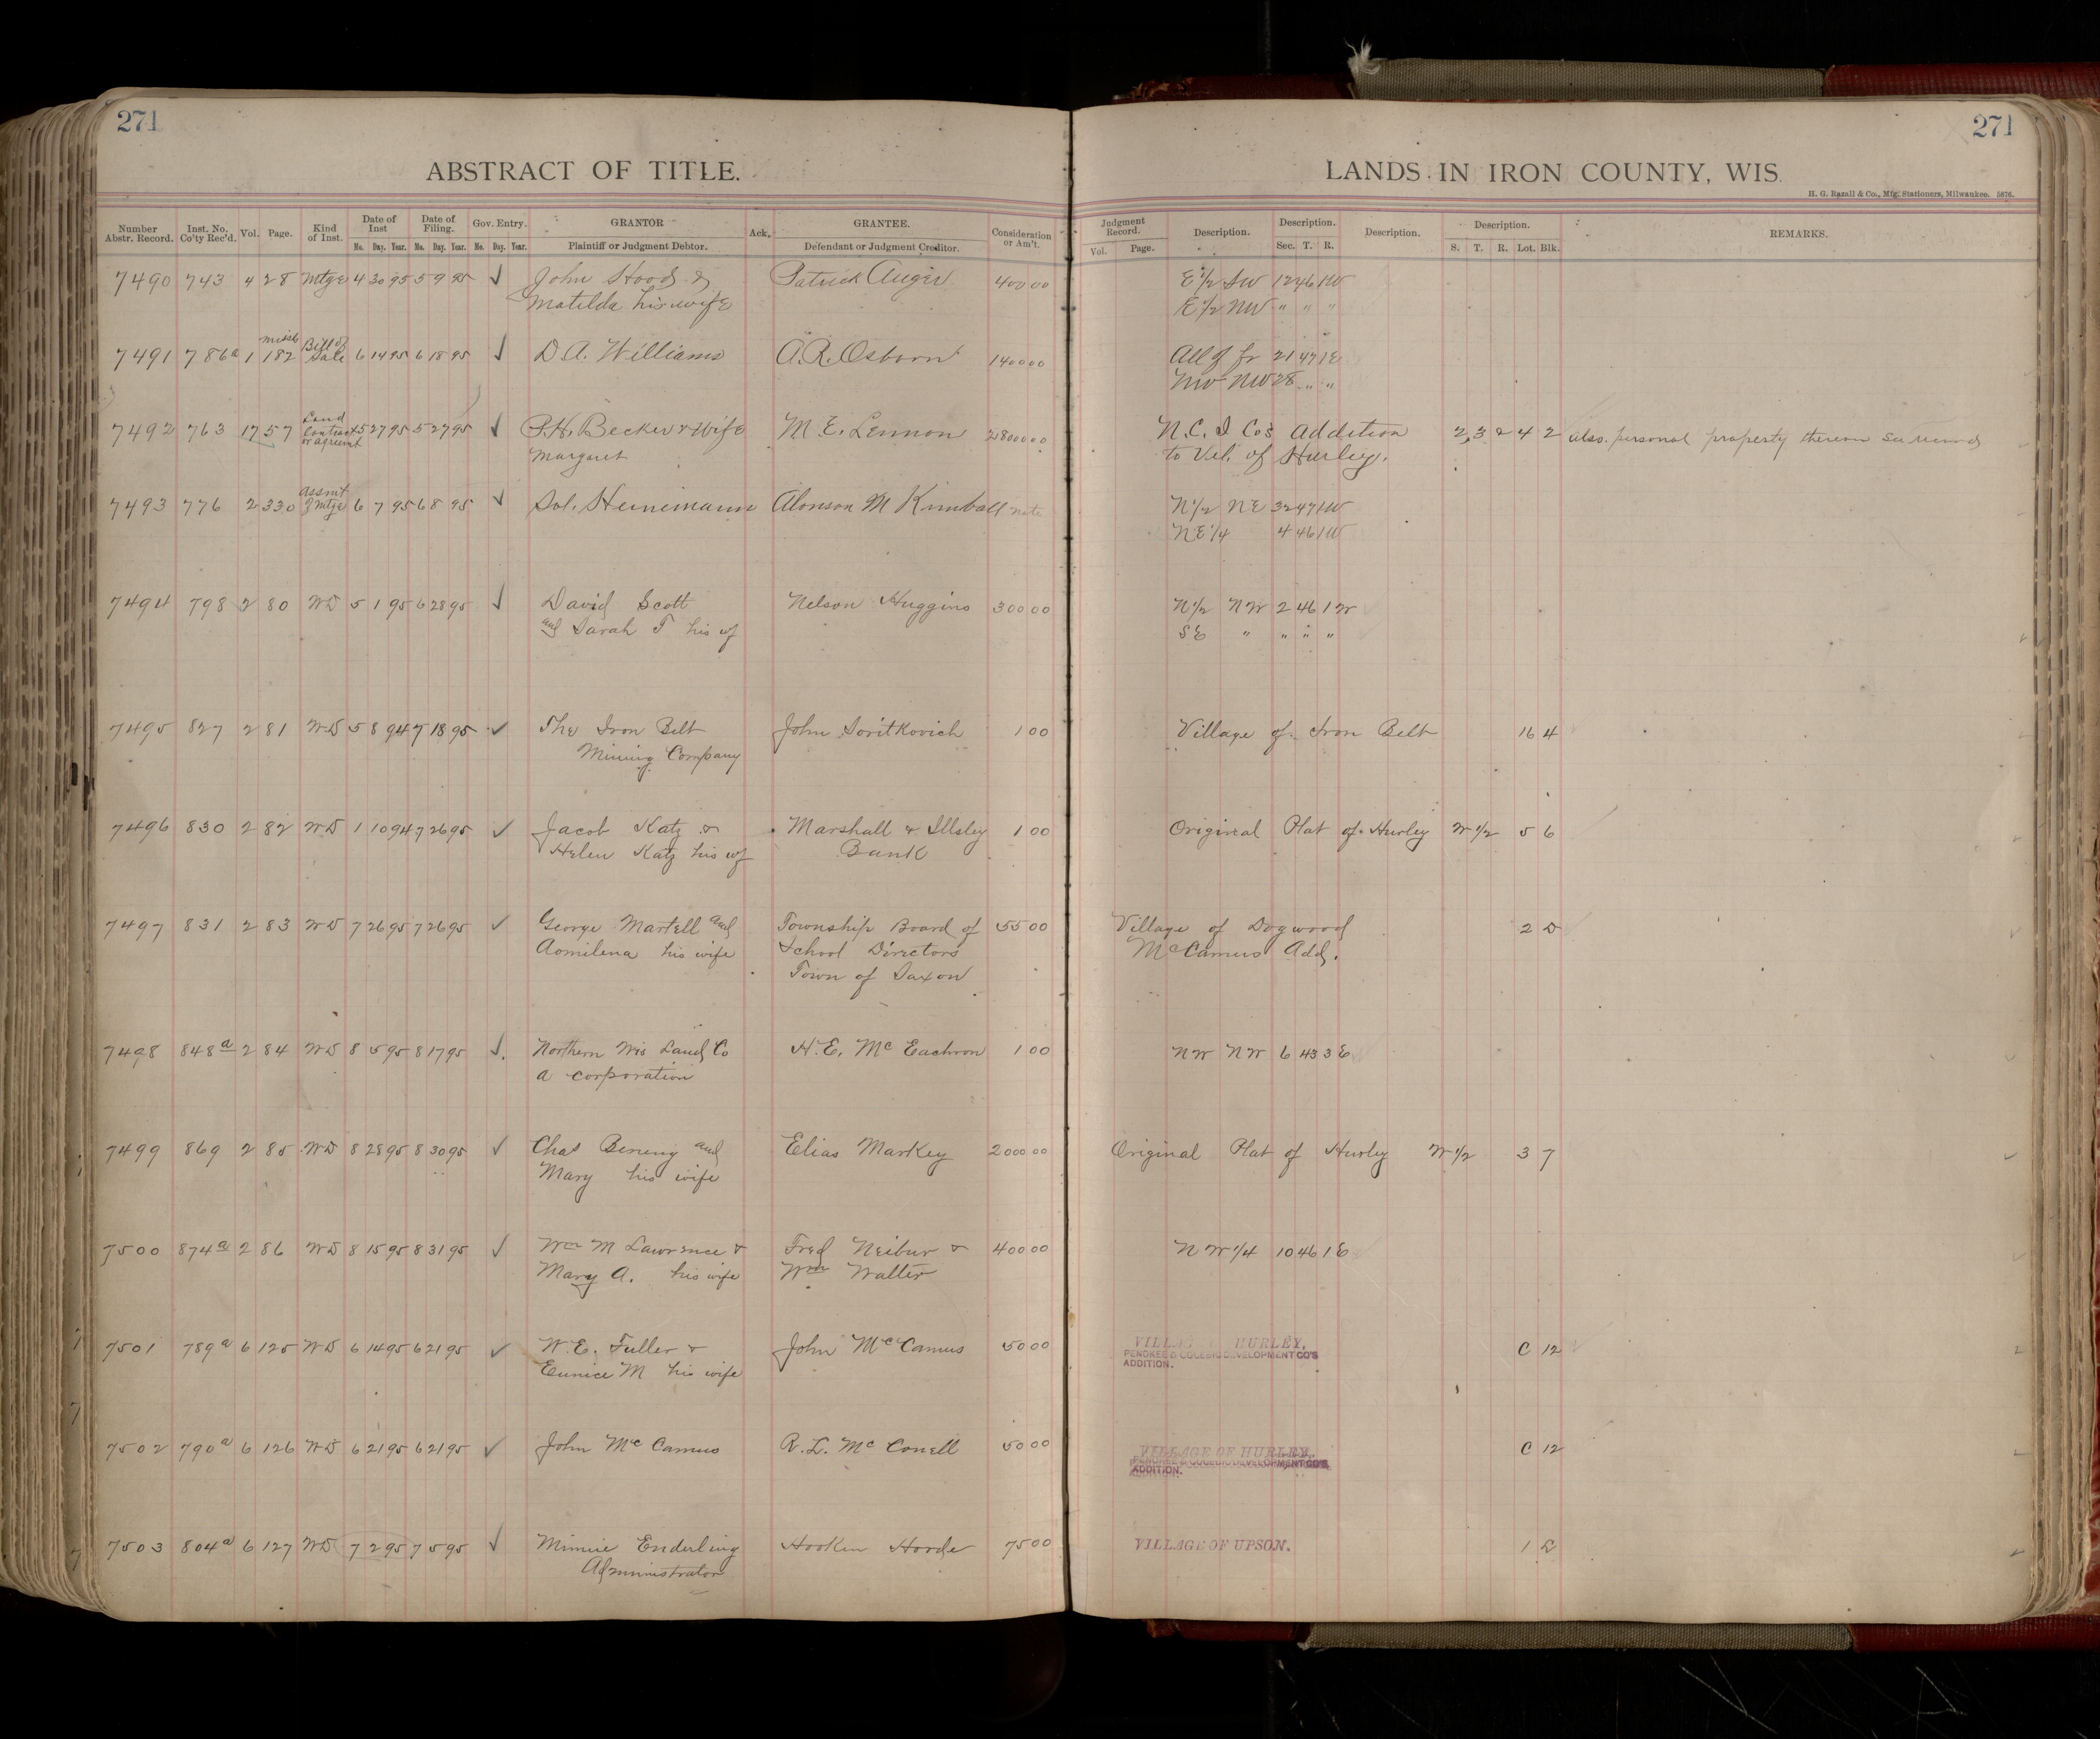 271
271
ABSTRACT OF TITLE.
LANDS IN IRON COUNTY, WIS.
H. G. Razall & Co., Mfg. Stationers, Milwaukee. 5876.
Number Abstr. Record. Inst. No. Co'ty Rec'd. Vol. Page. Kind of Inst. Date of Inst Date of Filing. Gov. Entry. GRANTOR Ack. GRANTEE. Consideration or Am't. Judgment Record. Description. Description. Description. Description. REMARKS.
Mo. Day. Year. Mo. Day. Year. No. Day. Year. Plaintiff or Judgment Debtor. Defendant or Judgment Creditor. Vol. Page. Sec. T. R. S. T. R. Lot. Blk.
7490 743 4 28 Mtge 4 30 95 5 9 95 ✓ John Hood & Patrick Auger 400 00 E 1/2 SW 12 46 1W
Matilda his wife E 1/2 NW " " "
7491 786a 1 misc 182 Bill of Sale 6 14 95 6 18 95 ✓ D A. Williams A.R. Osborn 1400 00 All of fr 21 47 1E
NW NW 28 " "
7492 763 17 57 Land Contract or agreemt 5 27 95 5 27 95 ✓ P.H. Becker & wife M. E. Lennon 2800 00 N.C. I Co's Addition 2,3 & 4 2 also personal property thereon
Margaret to Vil. of Hurley.
7493 776 2 330 Assmt of Mtge 6 7 95 6 8 95 ✓ Sol. Heinemann Alonson M Kimball note N 1/2 NE 32 47 1W
NE 1/4 4 46 1W
7494 798 2 80 WD 5 1 95 6 28 95 ✓ David Scott Nelson Huggins 300 00 N 1/2 NW 2 46 1W
and Sarah T his wf SE " " " "
7495 827 2 81 WD 5 8 94 7 18 95 ✓ The Iron Belt John Soritkovich 1 00 Village of Iron Belt 16 4
Mining Company
7496 830 2 82 WD 1 10 94 7 26 95 ✓ Jacob Katz & Marshall & Illsley 1 00 Original Plat of Hurley W 1/2 5 6
Helen Katz his wf Bank
7497 831 2 83 WD 7 26 95 7 26 95 ✓ George Martell and Township Board of 55 00 Village of Dogwood 2 D
Aomilena his wife School Directors McCamus Add.
Town of Saxon
7498 848a 2 84 WD 8 5 95 8 17 95 ✓ Northern Wis Land Co H.E. McEachron 1 00 NW NW 6 43 3E
a corporation
7499 869 2 85 WD 8 28 95 8 30 95 ✓ Chas Bening and Elias Markey 2000 00 Original Plat of Hurley W 1/2 3 7
Mary his wife
7500 874a 2 86 WD 8 15 95 8 31 95 ✓ Wm M Lawrence & Fred Neibur & 400 00 NW 1/4 10 46 1E
Mary A. his wife Wm Walter
7501 789a 6 125 WD 6 14 95 6 21 95 ✓ W.E. Fuller & John McCamus 50 00 VILLAG HURLEY, C 12
Eunice M his wife PENOKEE & GOGEBIC DEVELOPMENT CO'S
ADDITION.
7502 790a 6 126 WD 6 21 95 6 21 95 ✓ John McCamus R.L. McConell 50 00 VILLAGE OF HURLEY, C 12
PENOKEE & GOGEBIC DEVELOPMENT CO'S
ADDITION.
7503 804a 6 127 WD 7 2 95 7 5 95 ✓ Minnie Enderling Hooken Hoode 75 00 VILLAGE OF UPSON. 1 2
Administrator